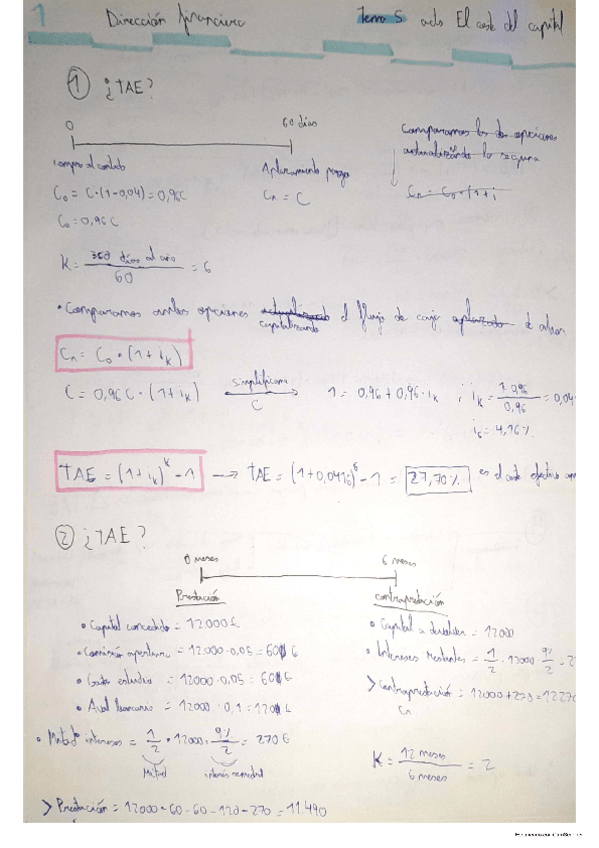 1 Dirección financiera Tema 5 acto El coste del capital
① ¿TAE?
0 60 días
compro al contado Aplazamiento pago
C₀ = C·(1-0,04) = 0,96C Cₙ = C
C₀ = 0,96 C
Comparamos las dos opciones
actualizando la segunda
Cₙ = C₀·(1+i
K = 360 días al año / 60 = 6
• Comparamos ambas opciones actualizando el flujo de caja aplazado de
capitalizando
Cₙ = C₀ • (1 + iₖ)
C = 0,96 C • (1 + iₖ) simplificamos C 1 = 0,96 + 0,96 · iₖ ; iₖ = 1-0,96 / 0,96 = 0,04
i₆ = 4,16%
TAE = (1 + iₖ)ᵏ - 1 → TAE = (1 + 0,0416)⁶ - 1 = 27,70% es el coste efectivo
② ¿TAE?
0 meses 6 meses
Prestación contraprestación
• Capital concedido = 12000€
• Comisión apertura = 12.000 · 0,05 = 60 €
• Gasto estudio = 12000 · 0,05 = 60 €
• Aval bancario = 12000 · 0,1 = 120 €
• Mitad intereses = 1/2 • 12000 · 9%/2 = 270 €
Mitad interés semestral
• Capital a devolver = 12000
• Intereses restantes = 1/2 · 12000 · 9%/2 = 2
> Contraprestación = 12000 + 270 = 12270
Cₙ
K = 12 meses / 6 meses = 2
> Prestación = 12000 - 60 - 60 - 120 - 270 = 11.490